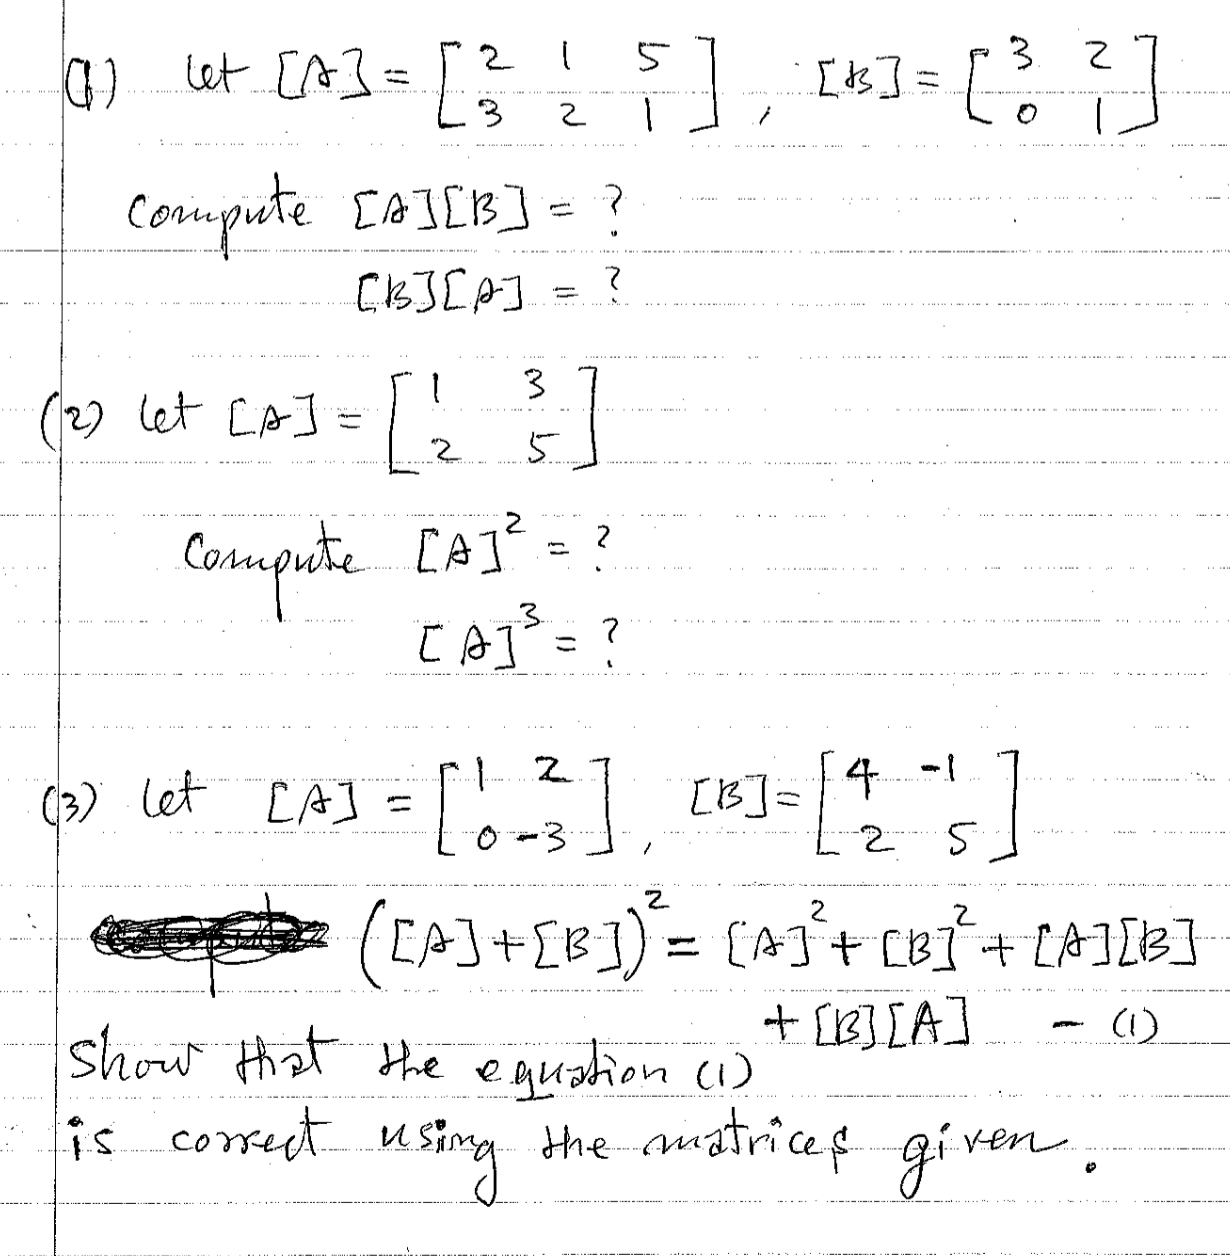 (1) let [A] = [ 2 1 5
3 2 1 ] , [B] = [ 3 2
0 1 ]
Compute [A][B] = ?
[B][A] = ?
(2) let [A] = [ 1 3
2 5 ]
Compute [A]² = ?
[A]³ = ?
(3) let [A] = [ 1 2
0 -3 ] , [B] = [ 4 -1
2 5 ]
([A]+[B])² = [A]² + [B]² + [A][B]
+ [B][A] - (1)
Show that the equation (1)
is correct using the matrices given.